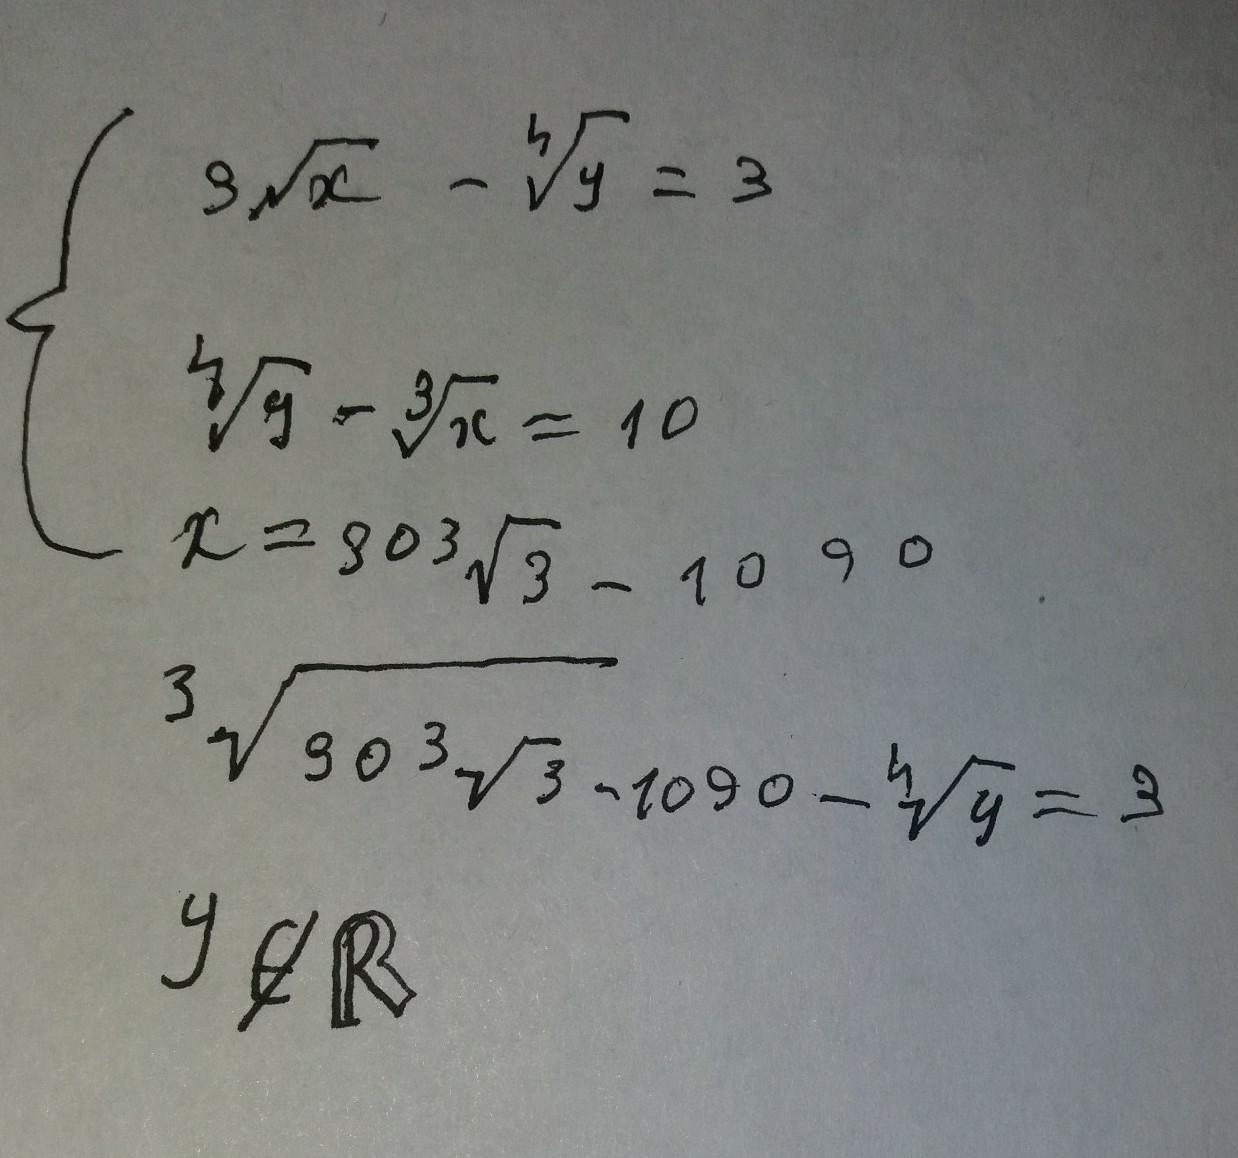 9√x - ⁴√y = 3
⁴√y - ³√x = 10
x = 903√3 - 1090
³√903√3 - 1090 - ⁴√y = 3
y ∉ ℝ